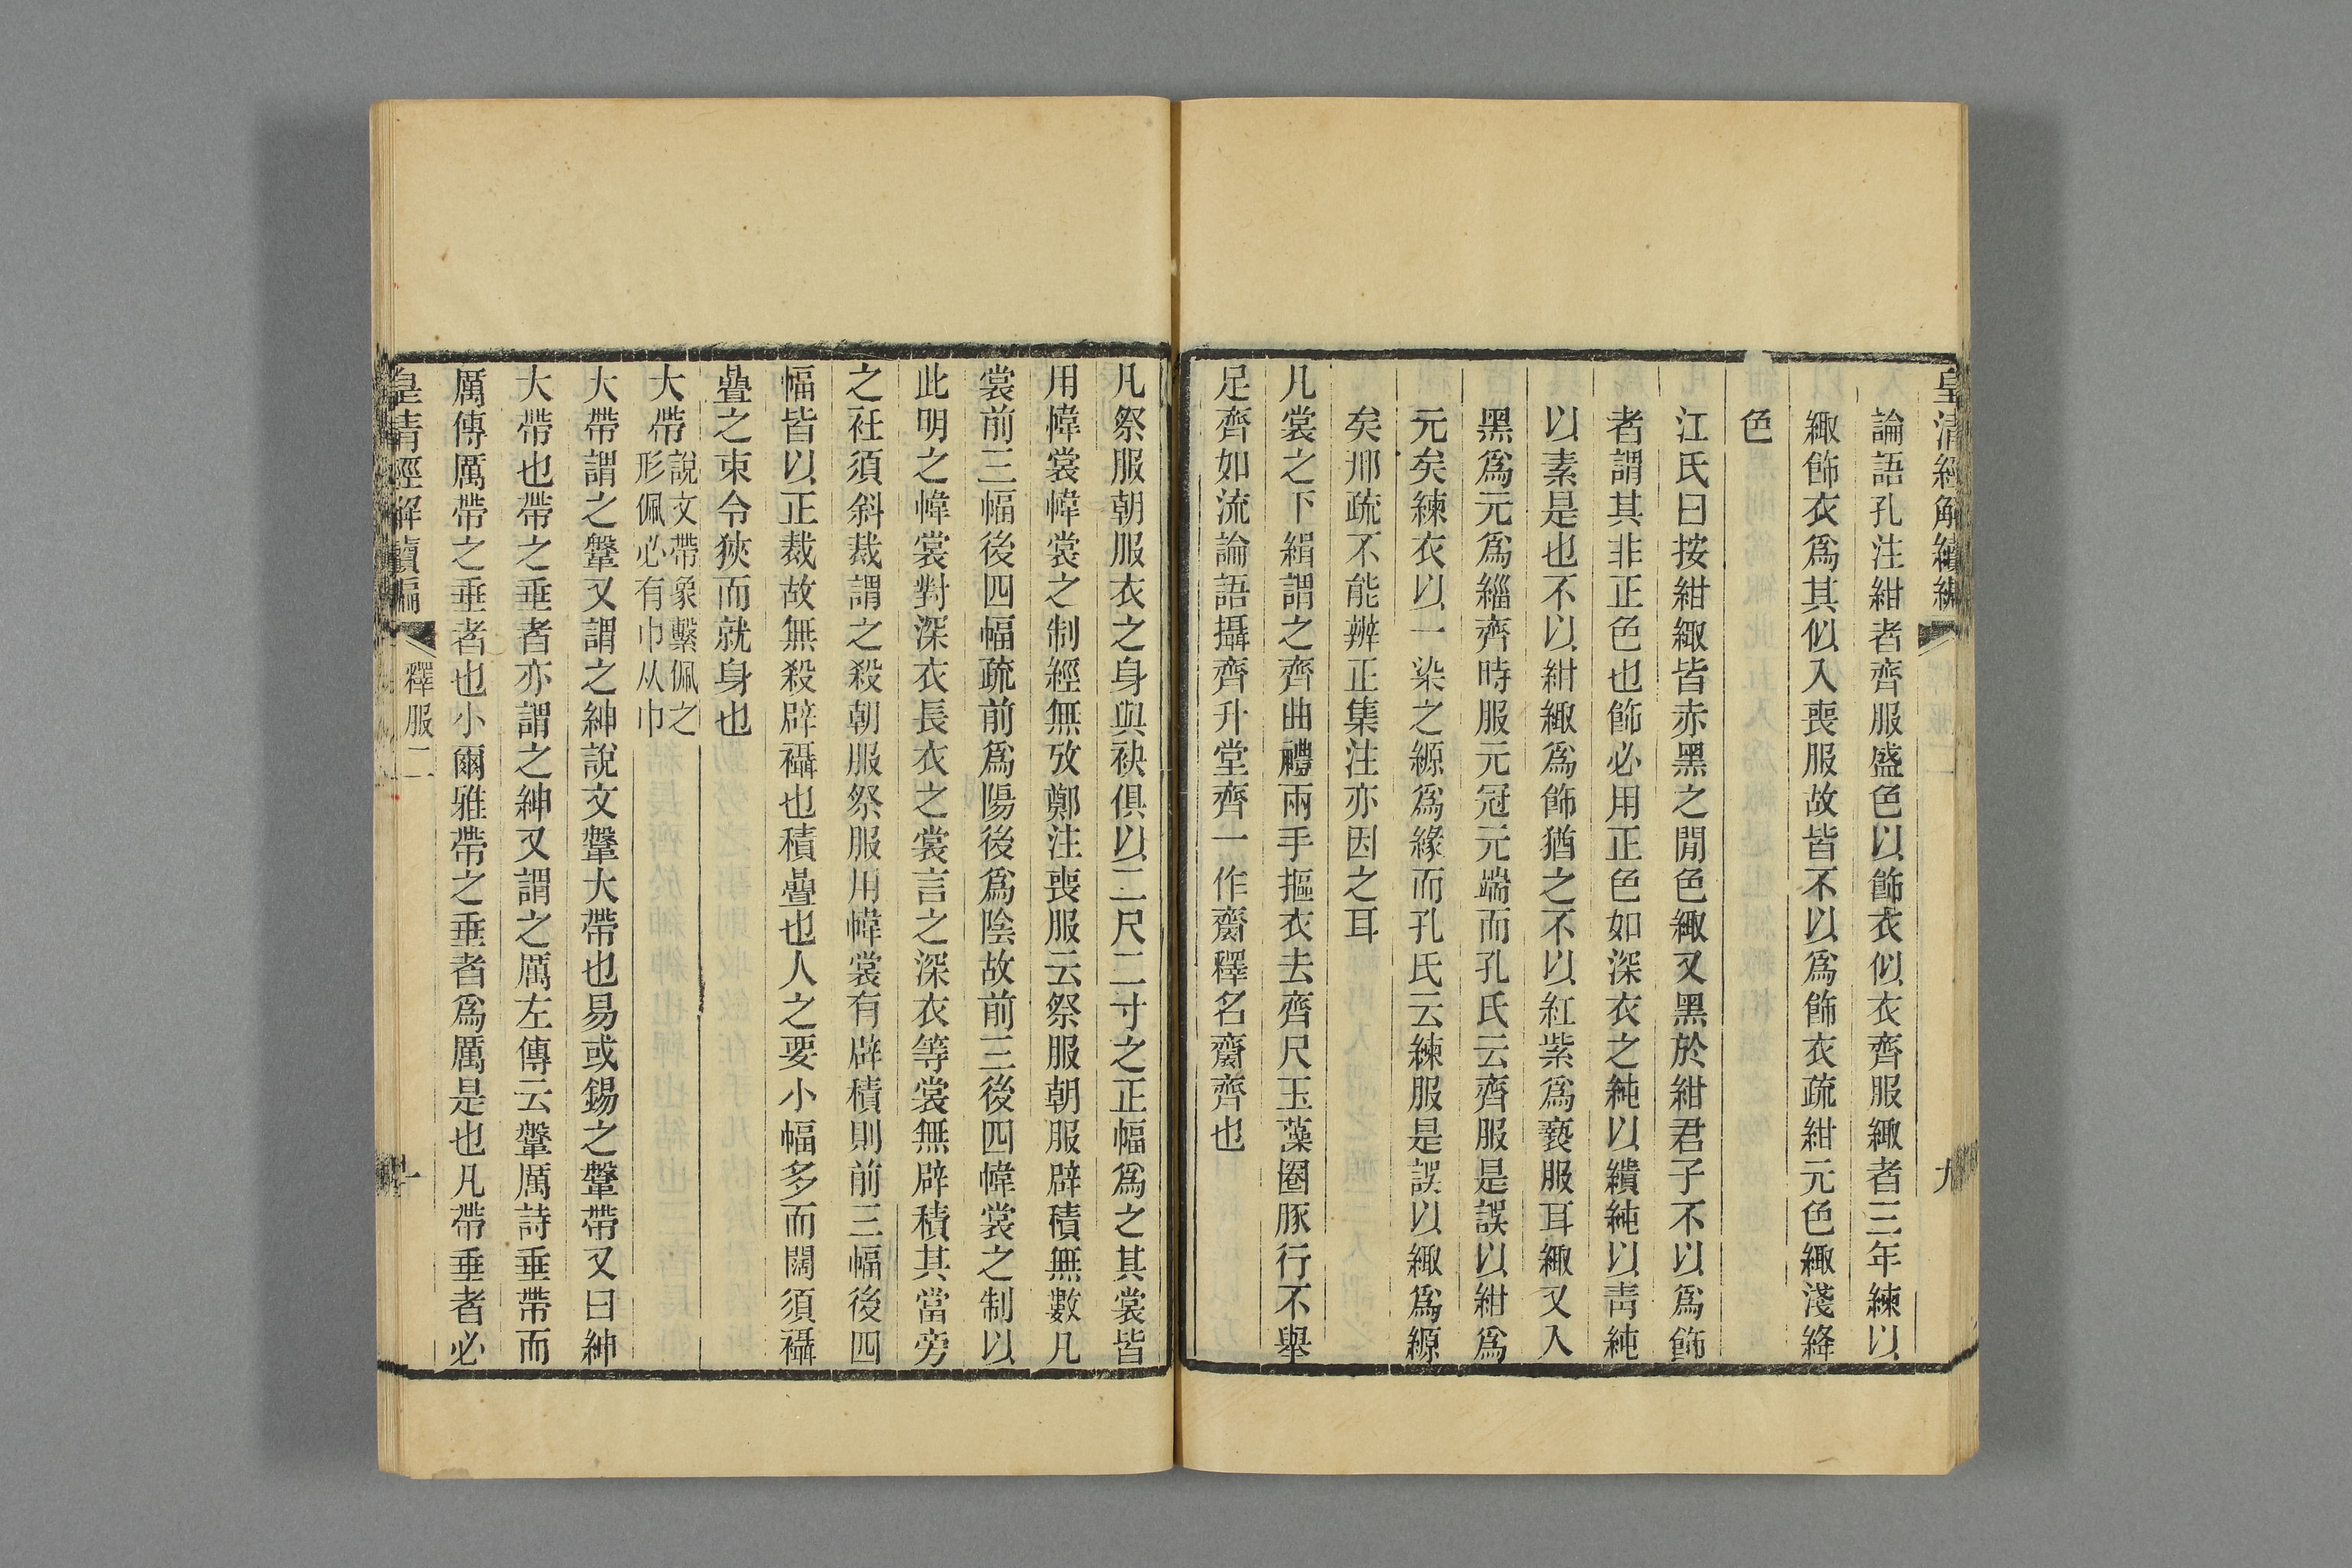 皇清經解續編
九
論語孔注紺者齊服盛色以飾衣似衣齊服緅者三年練以
緅飾衣爲其似入喪服故皆不以爲飾衣疏紺元色緅淺絳
色
江氏曰按紺緅皆赤黑之閒色緅又黑於紺君子不以爲飾
者謂其非正色也飾必用正色如深衣之純以繢純以靑純
以素是也不以紺緅爲飾猶之不以紅紫爲褻服耳緅又入
黑爲元爲緇齊時服元冠元端而孔氏云齊服是誤以紺爲
元矣練衣以一染之縓爲緣而孔氏云練服是誤以緅爲縓
矣邢疏不能辨正集注亦因之耳
凡裳之下緝謂之齊曲禮兩手摳衣去齊尺玉藻圈豚行不舉
足齊如流論語攝齊升堂齊一作齋釋名齋齊也
凡祭服朝服衣之身與袂俱以二尺二寸之正幅爲之其裳皆
用幃裳幃裳之制經無攷鄭注喪服云祭服朝服辟積無數凡
裳前三幅後四幅疏前爲陽後爲陰故前三後四幃裳之制以
此明之幃裳對深衣長衣之裳言之深衣等裳無辟積其當旁
之衽須斜裁謂之殺朝服祭服用幃裳有辟積則前三幅後四
幅皆以正裁故無殺辟襵也積疊也人之要小幅多而闊須襵
疊之束令狹而就身也
大帶說文帶象繫佩之形佩必有巾从巾
大帶謂之鞶又謂之紳說文鞶大帶也易或錫之鞶帶又曰紳
大帶也帶之垂者亦謂之紳又謂之厲左傳云鞶厲詩垂帶而
厲傳厲帶之垂者也小爾雅帶之垂者爲厲是也凡帶垂者必
皇清經解續編
釋服二
十